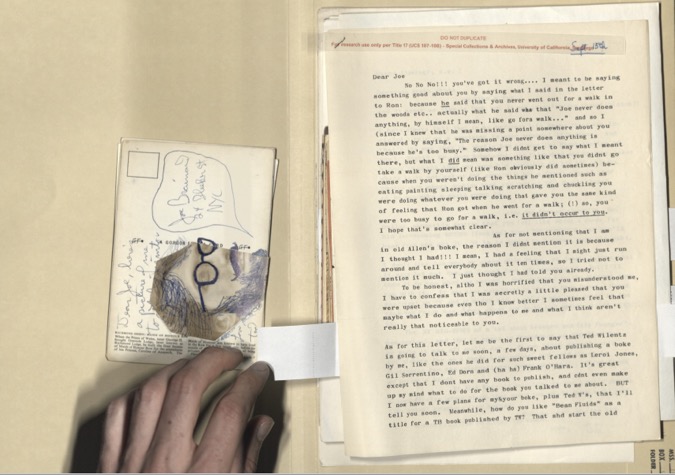 DO NOT DUPLICATE
For research use only per Title 17 (UCS 107-108) - Special Collections & Archives, University of California,
Sept 15th
Dear Joe
No No No!!! you've got it wrong.... I meant to be saying
something good about you by saying what I said in the letter
to Ron: because he said that you never went out for a walk in
the woods etc.. actually what he said was that "Joe never does
anything, by himself I mean, like go fora walk..." and so I
(since I knew that he was missing a point somewhere about you
answered by saying, "The reason Joe never does anything is
because he's too busy." Somehow I didnt get to say what I meant
there, but what I did mean was something like that you didnt go
take a walk by yourself (like Ron obviously did sometimes) be-
cause when you weren't doing the things he mentioned such as
eating painting sleeping talking scratching and chukling you
were doing whatever you were doing that gave you the same kind
of feeling that Ron got when he went for a walk; (!) so, you
were too busy to go for a walk, i.e. it didn't occur to you.
I hope that's somewhat clear.
As for not mentioning that I am
in old Allen's boke, the reason I didnt mention it is because
I thought I had!!! I mean, I had a feeling that I might just run
around and tell everybody about it ten times, so I tried not to
mention it much. I just thought I had told you already.
To be honest, altho I was horrified that you misunderstood me,
I have to confess that I was secretly a little pleased that you
were upset because even tho I know better I sometimes feel that
maybe what I do and what happens to me and what I think aren't
really that noticeable to you.
As for this letter, let me be the first to say that Ted Wilentz
is going to talk to me soon, a few days, about publishing a boke
by me, like the ones he did for such sweet fellows as Leroi Jones,
Gil Sorrentino, Ed Dorn and (ha ha) Frank O'Hara. It's great
except that I dont have any book to publish, and cdnt even make
up my mind what to do for the book you talked to me about. BUT
I now have a few plans for your boke, plus Ted W's, that I'll
tell you soon. Meanwhile, how do you like "Bean Fluids" as a
title for a TB book published by That shd start the old
Joe Brainard
NYC
Dear Joe, here's
a picture of me
MSS
BOX
FOLDER